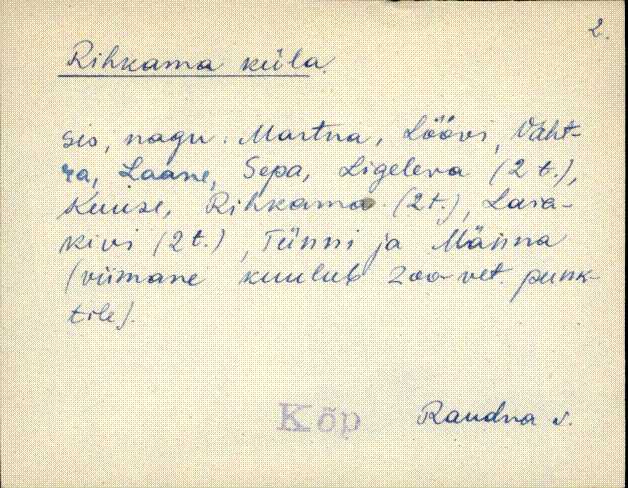 2.
Rihkama küla.
sio, nagu: Martna, Löövi, Väht-
ra, Laane, Sepa, Ligeleva (2 t.),
Kuuse, Rihkama (2 t.), Lara-
kivi (2 t.), Tünni ja Männa
(viimane kuulub zoo-vet. punk-
tile).
Kõp Raudna v.